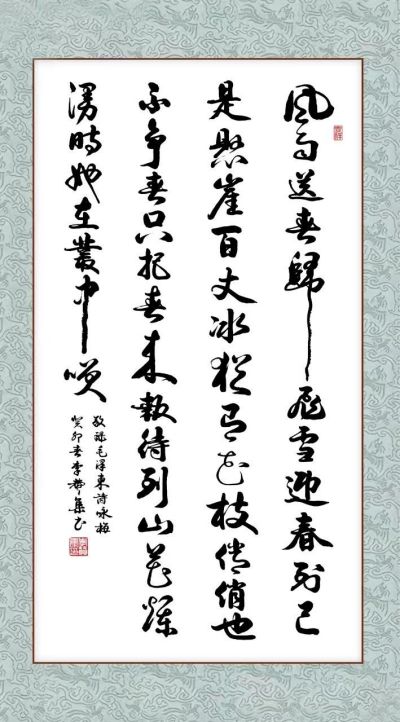 风雨送春歸飛雪迎春到已
是懸崖百丈冰猶有花枝俏俏也
不争春只把春來報待到山花爛
漫時她在叢中笑
敬録毛澤東詩詠梅
癸卯春李